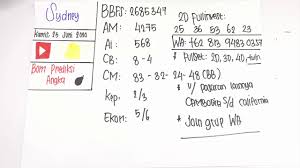 Sydney
Kamis 25 Juni 2020
Bom Prediksi
Angka
BBFS: 2685347
AM: 4275
Ai: 568
CB: 8-4
CM: 83-32-24-48 (BB)
Kep: 2/3
Ekor: 5/6
2D Fullinvest:
25 36 53 62 23
WA: +62 813 9483 0357
* Fullset: 2D, 3D, 4D, twin
* 1/ pasaran lainnya
Cambodia s/d California
* Join grup WA